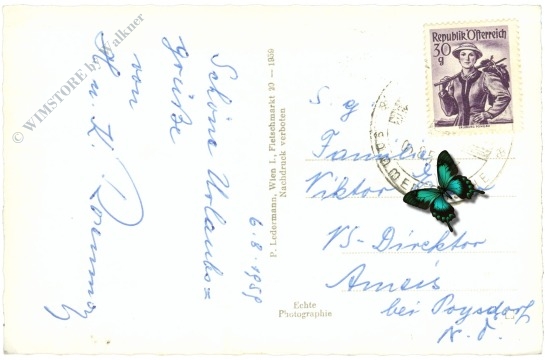 © WIMSTORE by Falkner
Schöne Urlaubs=
grüße
von
P. Ledermann, Wien I., Fleischmarkt 20 — 1959
Nachdruck verboten
6.8.1959
Echte
Photographie
Republik Österreich
30
g
S g
Familie
Viktor
VS-Direktor
Ameis
bei Poysdorf
N.Ö.